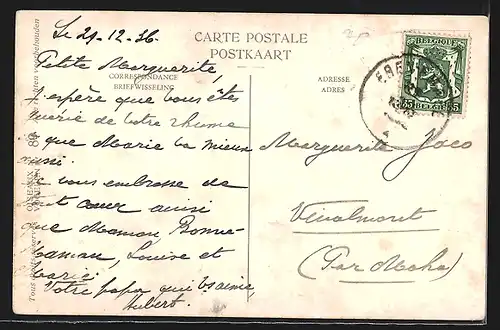 Le 29-12-36
CARTE POSTALE
POSTKAART
BELGIQUE
35 BELGIE 35
Petite Marguerite,
CORRESPONDANCE
BRIEFWISSELING
ADRESSE
ADRES
J'espère que vous êtes
guérie de votre rhume
que Marie va mieux
aussi.
Je vous embrasse de
tout cœur ainsi
que Maman, Bonne-
Maman, Louise et
Marie.
Votre papa qui v. aime,
Hubert.
Marguerite Jaco
Vinalmont
(Par Moha)
Tous droits réservés
Alle rechten voorbehouden
OISEAUX
89